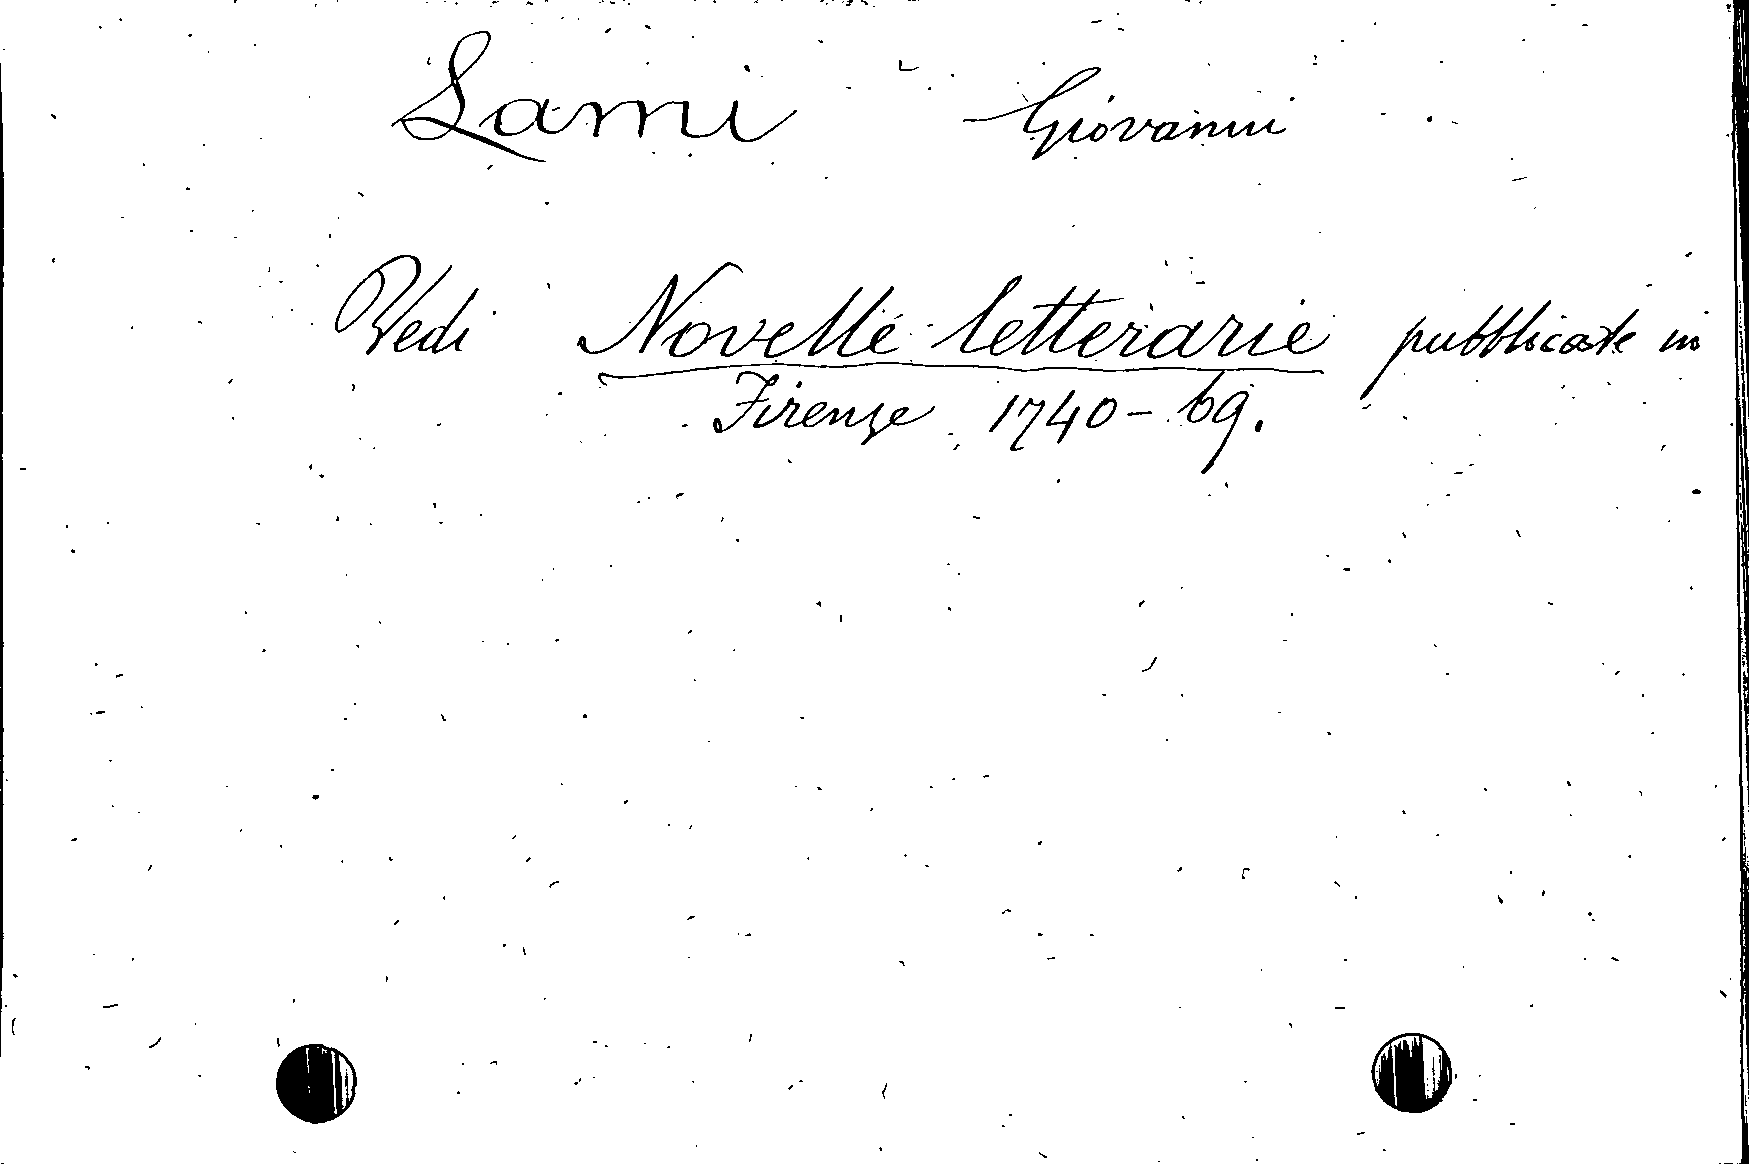 Lami Giovanni
Vedi Novelle letterarie pubblicate in
Firenze 1740-69.